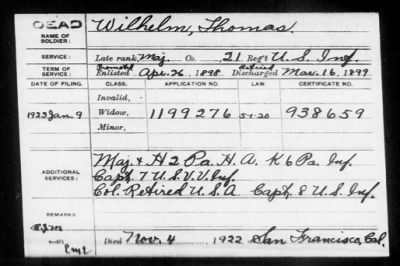 DEAD
NAME OF SOLDIER: Wilhelm, Thomas.
SERVICE: Late rank, Maj. Co. 21 Reg't U.S. Inf.
TERM OF SERVICE: Enlisted Promoted Apr. 26, 1898 Discharged Retired Mar. 16, 1899
DATE OF FILING. CLASS. APPLICATION NO. LAW. CERTIFICATE NO.
Invalid,
1923 Jan. 9 Widow, 1199276 5-1-20 938659
Minor,
ADDITIONAL SERVICES: Maj. & H 2 Pa. H.A. K 6 Pa. Inf.
Capt. 7 U.S.V.V. Inf.
Col. Retired U.S.A. Capt. 8 U.S. Inf.
REMARKS:
Died Nov. 4, 1922 San Francisco, Cal.